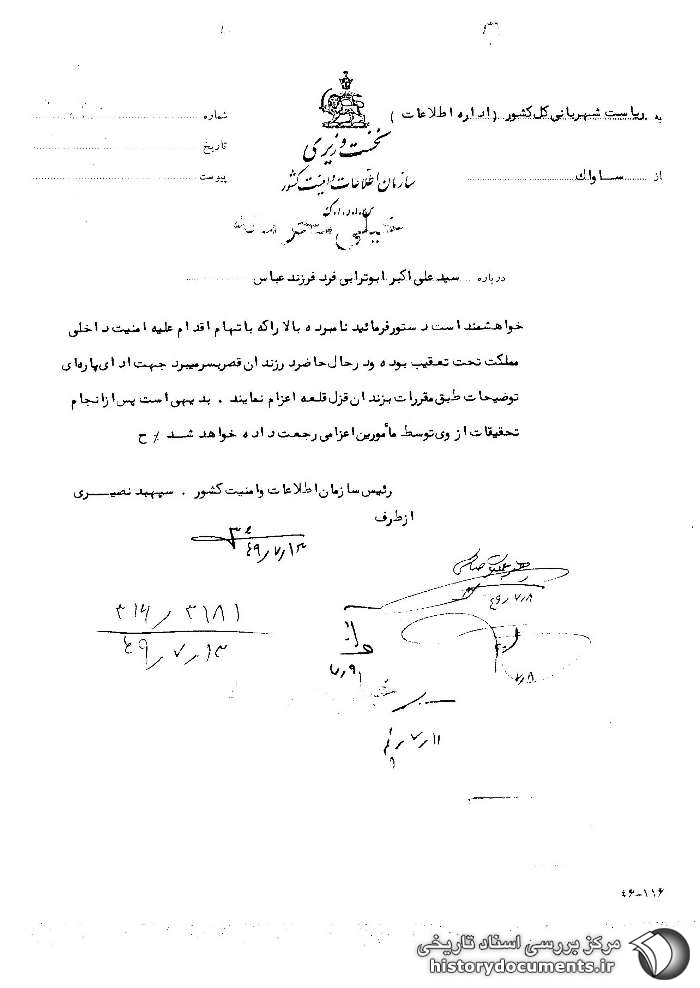 به ریاست شهربانی کل کشور (اداره اطلاعات)
از ساواک
نخست وزیری
سازمان اطلاعات و امنیت کشور
س.ا.و.ا.ک
شماره
تاریخ
پیوست
خیلی محرمانه
درباره سید علی اکبر ابوترابی فرد فرزند عباس
خواهشمند است دستور فرمائید نامبرده بالا را که باتهام اقدام علیه امنیت داخلی
مملکت تحت تعقیب بوده و در حال حاضر در زندان قصر بسر میبرد جهت ادای پاره‌ای
توضیحات طبق مقررات بزندان قزل قلعه اعزام نمایند . بدیهی است پس از انجام
تحقیقات از وی توسط مأمورین اعزامی رجعت داده خواهد شد / ح
رئیس سازمان اطلاعات و امنیت کشور . سپهبد نصیری
از طرف
۴۹/۷/۱۳
۴۹/۷/۸
۳۱۶/۳۱۸۱
۴۹/۷/۱۳
۷/۸
۷/۹
۷/۱۱
۴۶-۱۱۶
مرکز بررسی اسناد تاریخی
historydocuments.ir